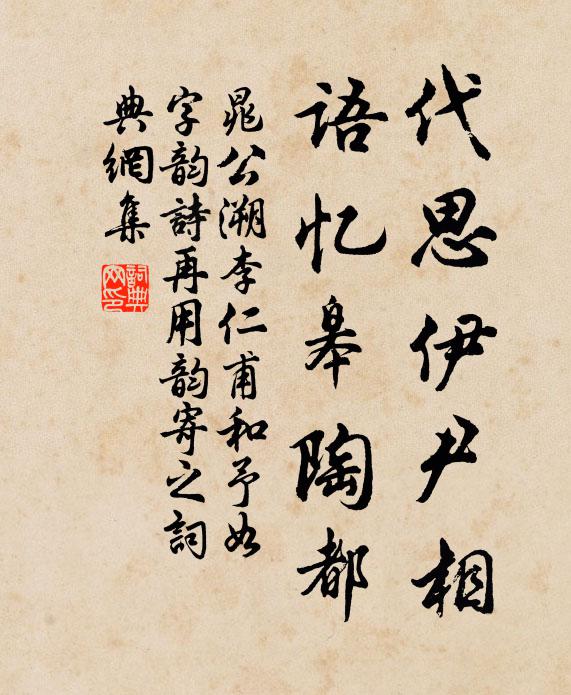 代思伊尹相
语忆皋陶都
晁公溯李仁甫和予如
字韵詩再用韵寄之詞
典網集
詞典網印